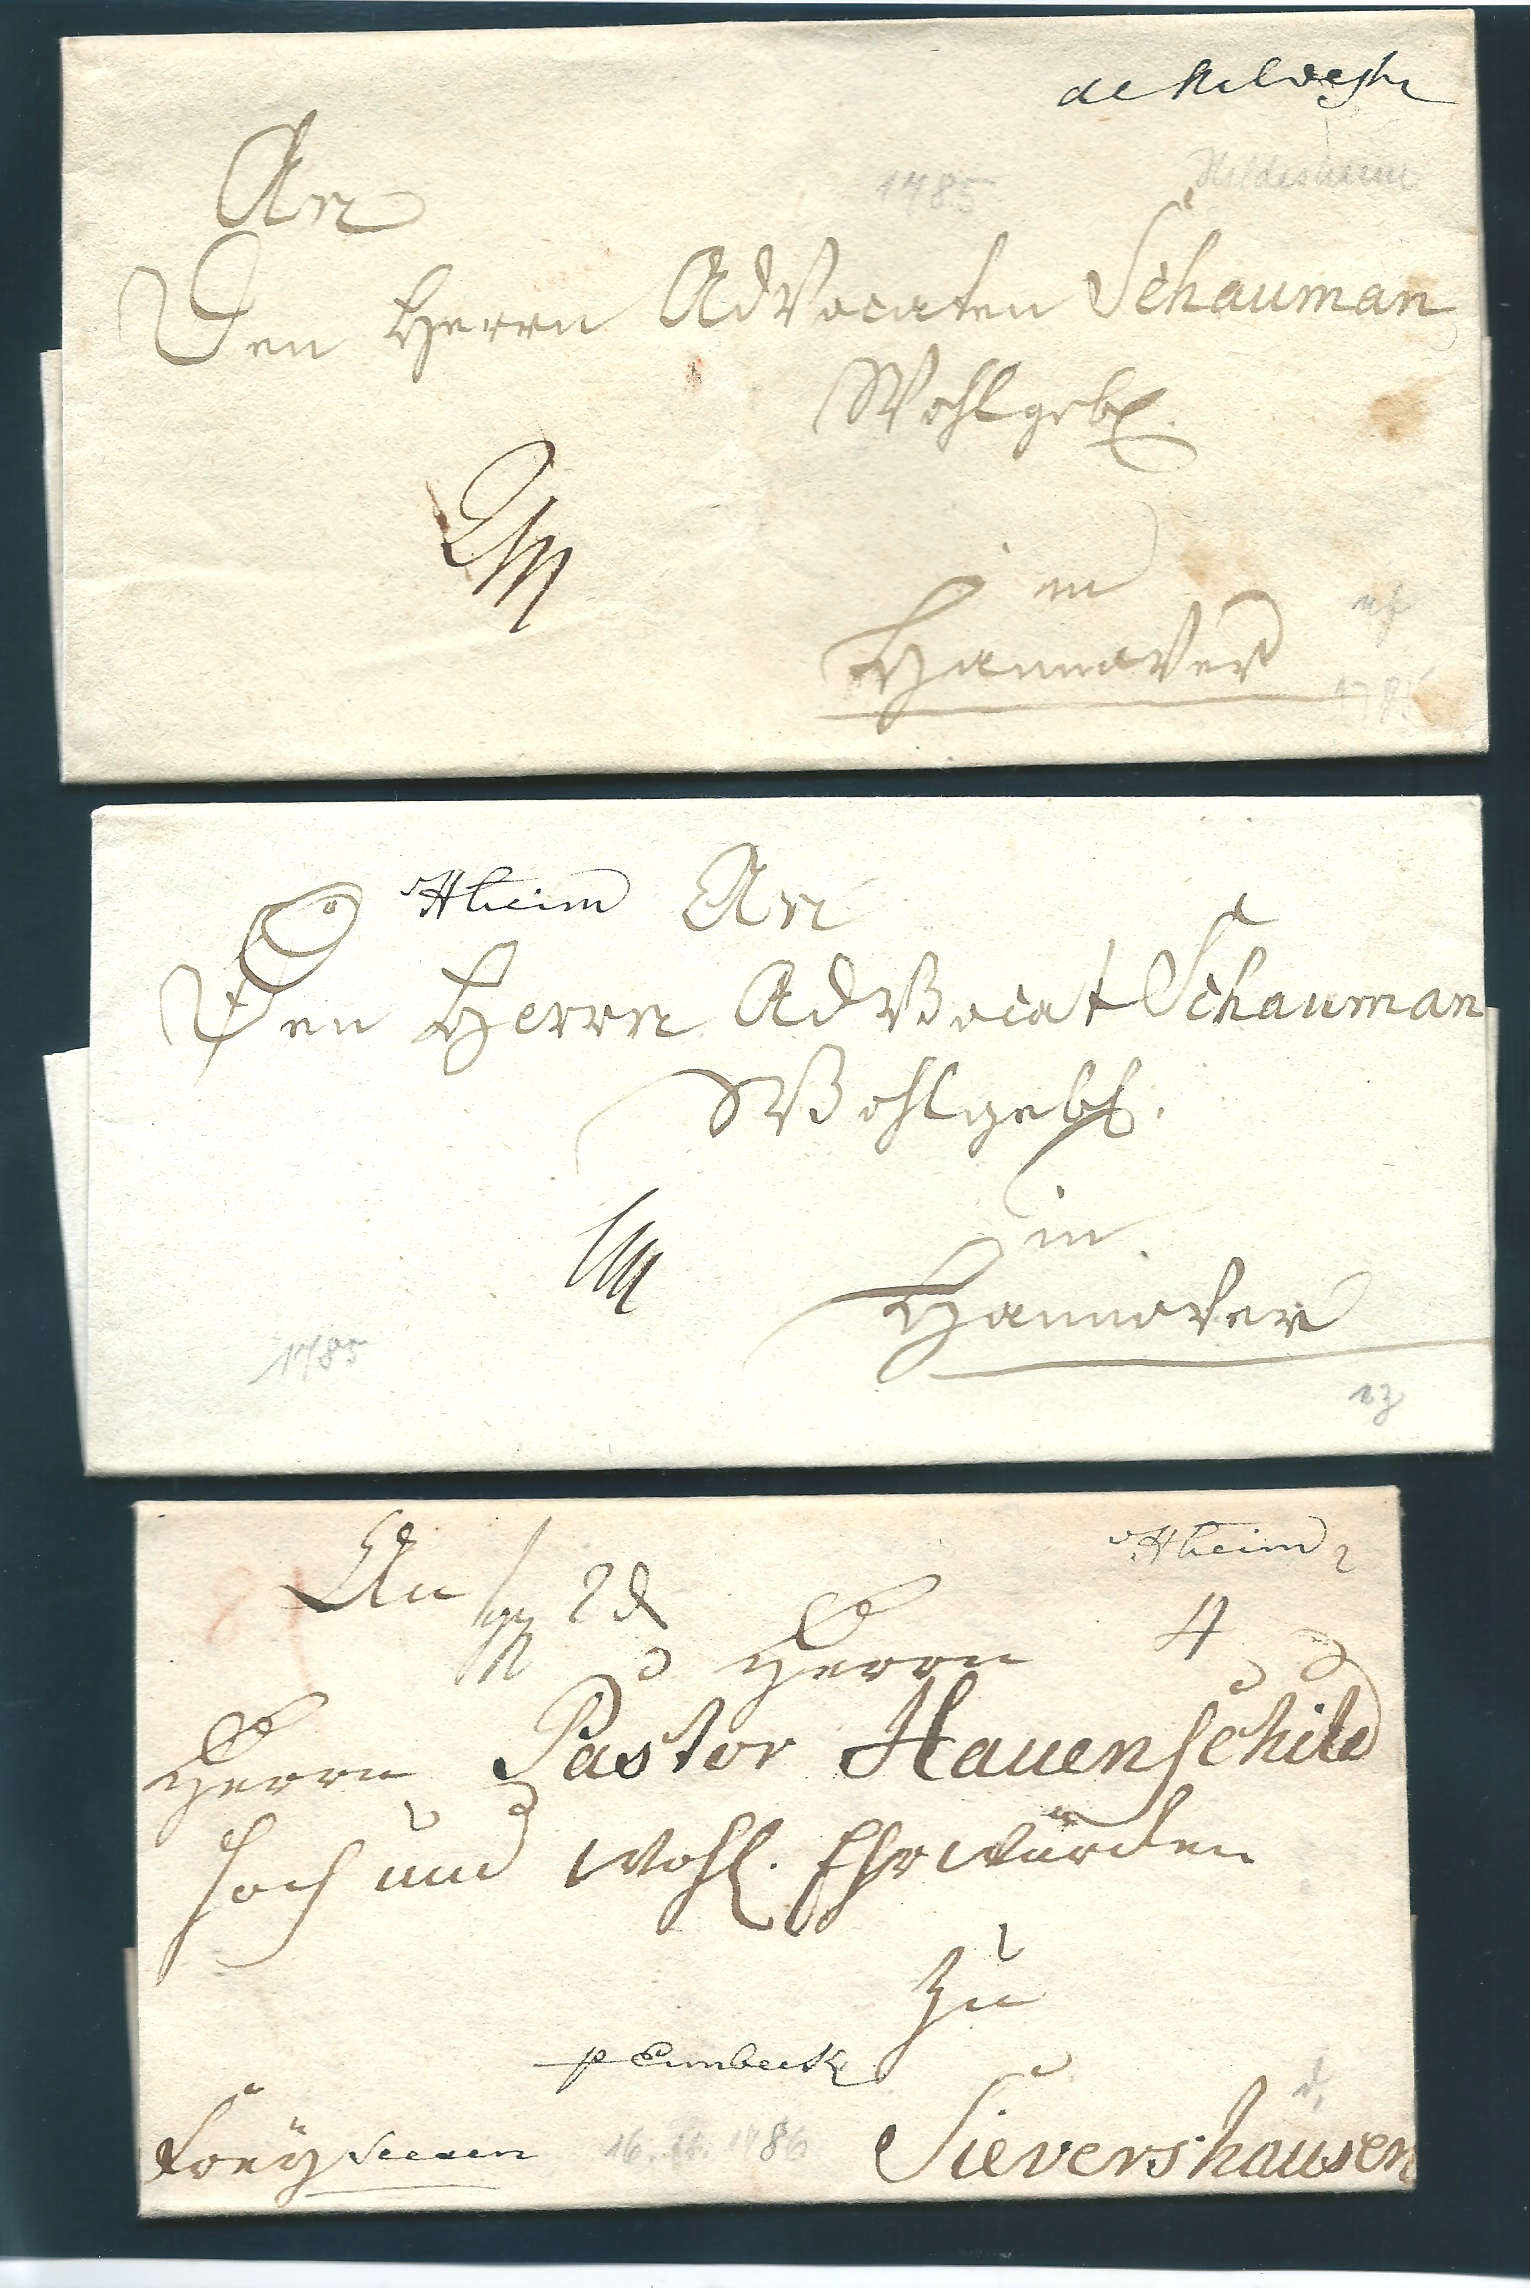 de Hildesh
An
1785
Hildesheim
Den Herrn Advocaten Schauman
Wohlgeb.
in
Hannover
1785
Hheim
An
Den Herrn Advocat Schauman
Wohlgeb.
in
Hannover
1785
Hheim
An
2
4
Herrn
Herrn Pastor Hauenschild
Hoch und Wohl. Ehrwürden
zu
p Eimbeck
Sievershausen
Seesen
1786